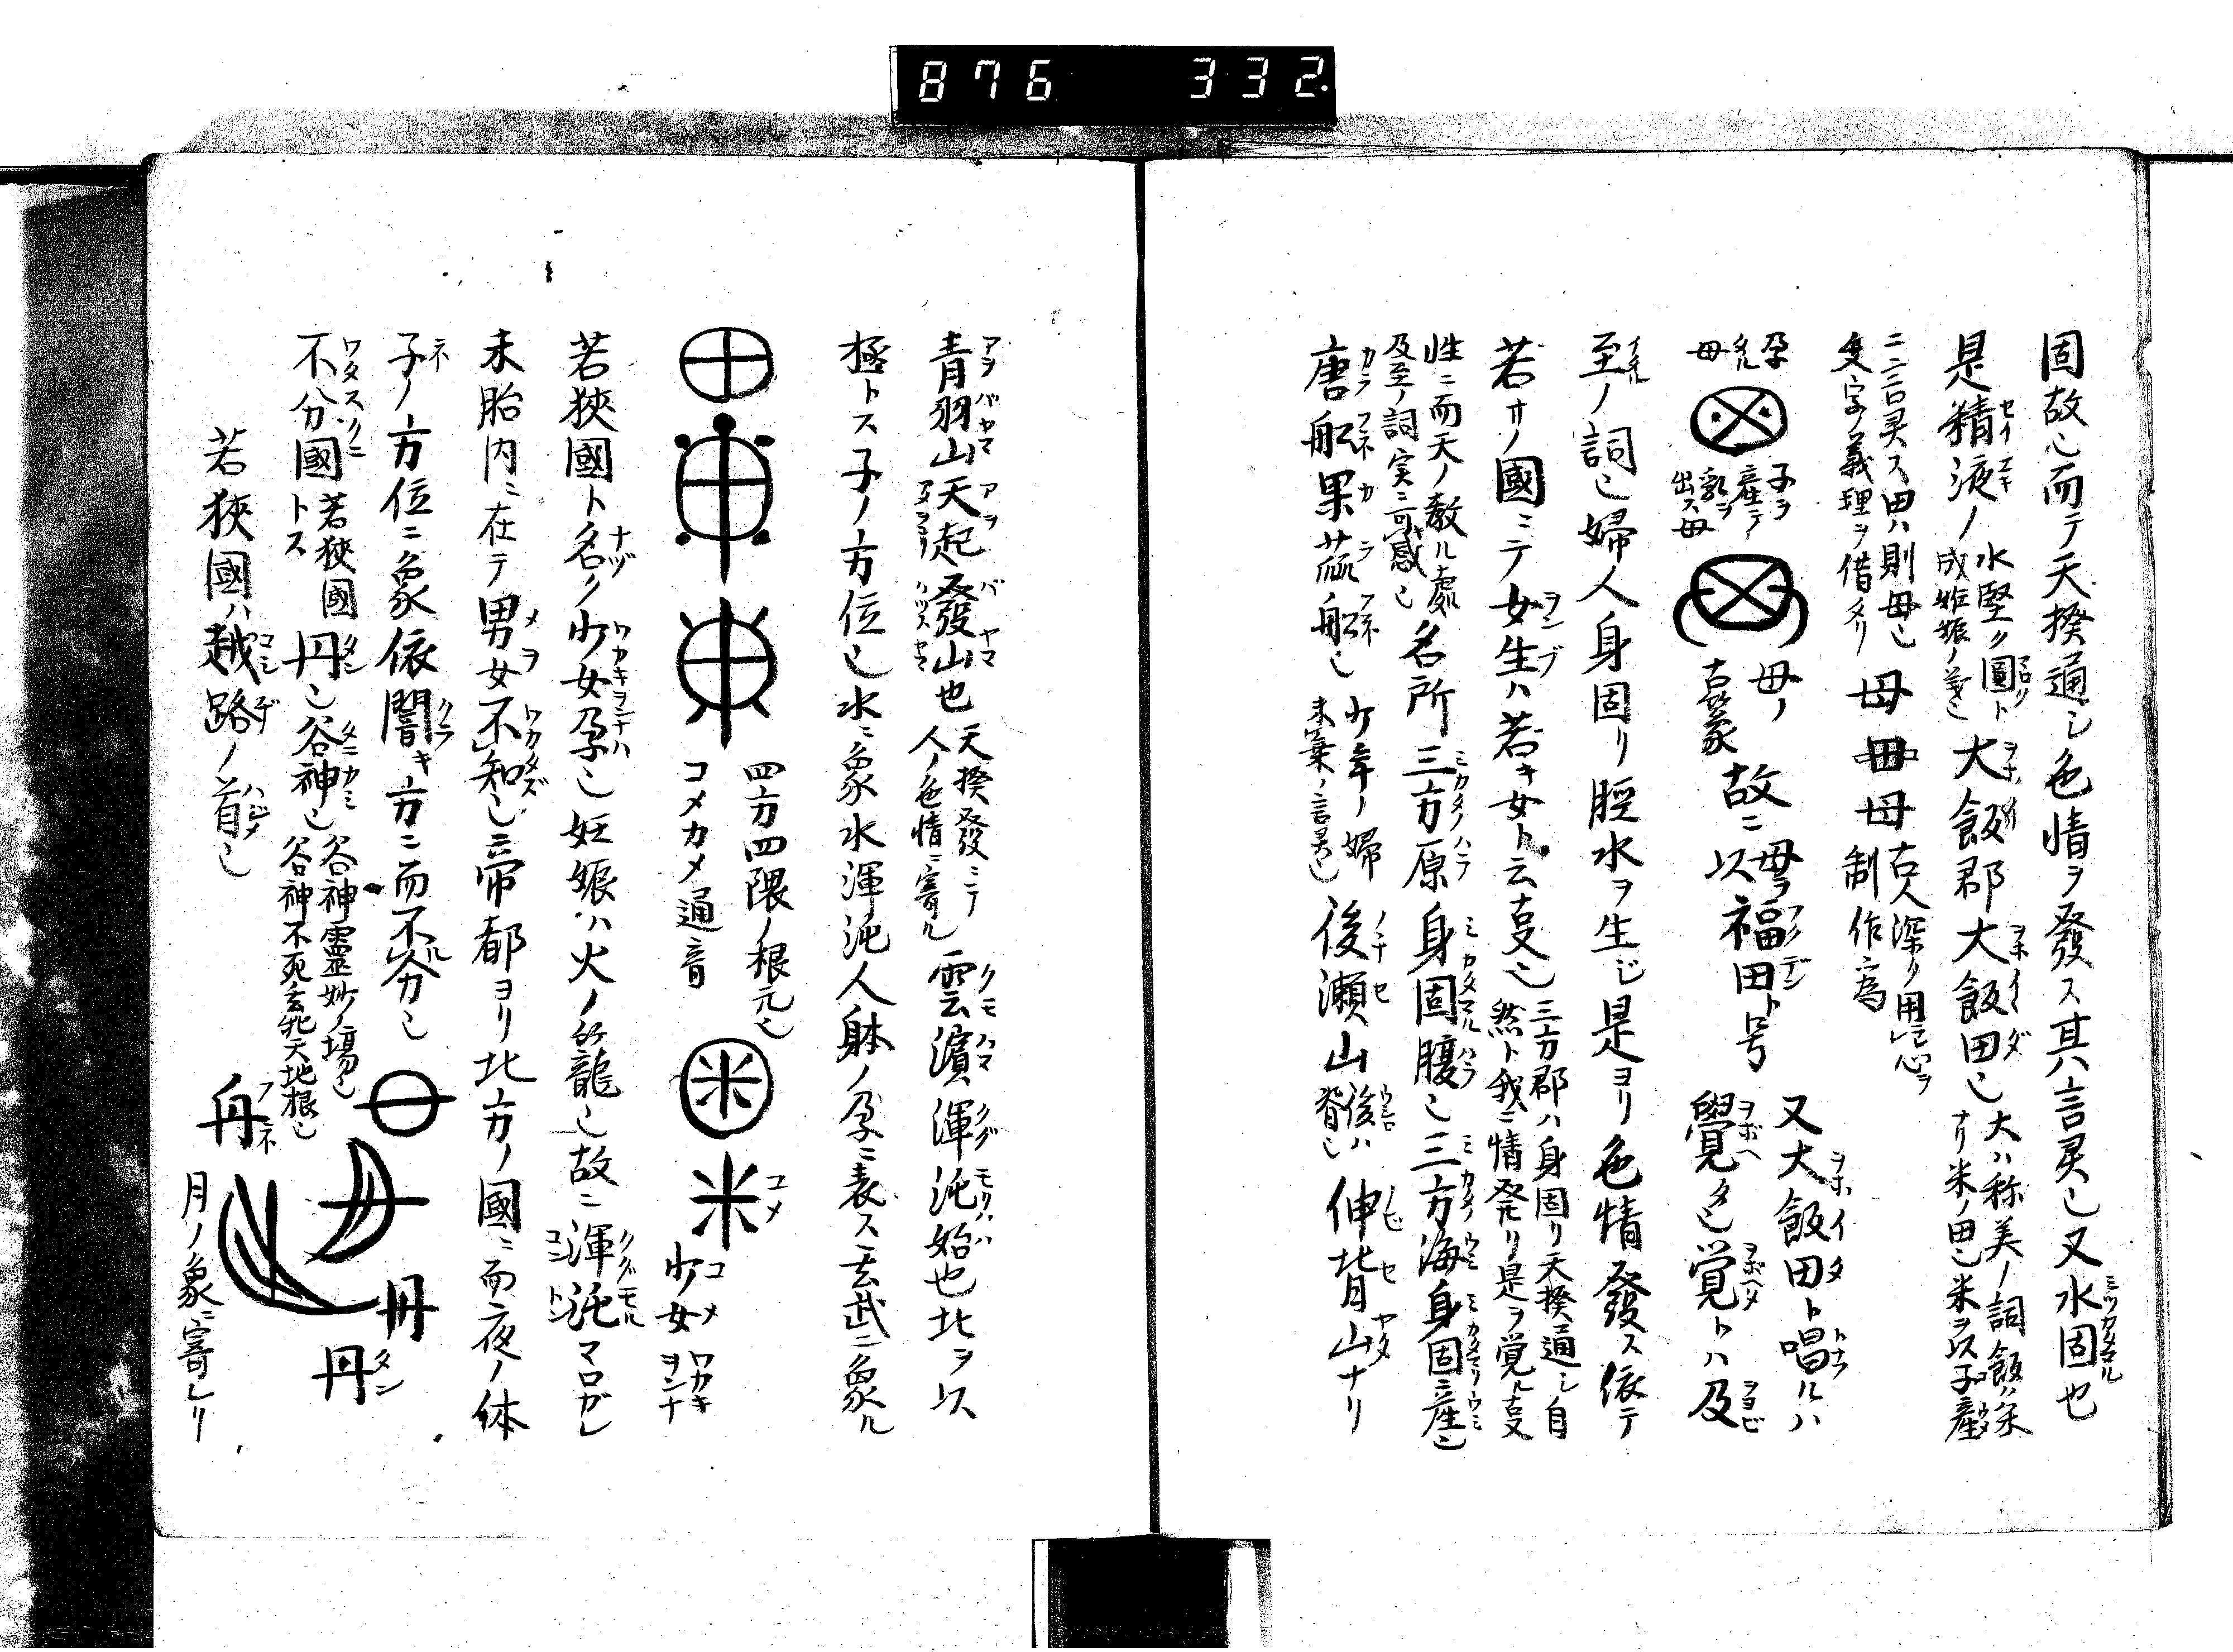 876 332.
固故也而テ天揆通シ色情ヲ發ス其ハ言灵也又水固也
是精液ノ水堅ク圓ト成姙娠ノ義也大飯郡大飯田也大ハ称美ノ詞飯ハ米ナリ米ノ田也米ヲ以子産
ニ言灵ス田ハ則母也
文字ノ義理ヲ借タリ
母 母 母 古人深ク用心ヲ制作為
孕タル母
子ヲ産テ乳ヲ出ス母
母ノ古篆
故ニ母ヲ以福田ト号
又大飯田ト唱ルハ
覺タ也覚タトハ及
至ノ詞也婦人身固リ脛水ヲ生ジ是ヨリ色情發ス依テ
若サノ國ニテ女生ハ若キ女ト云支也三方郡ハ身固リ天揆通シ自然ト我ニ情発リ是ヲ覚ル支
性ニ而天ノ教ル處
及至ノ詞実ニ可感也
名所三方原身固腹也三方海身固産也
唐船果蓏船也少年ノ婦未棄ノ言灵也後瀬山後ハ背也伸背山ナリ
青羽山天起發山也天揆發ニテ人ノ色情ニ寄ル雲濵渾沌始也北ヲ以
極トス子ノ方位也水ニ象水渾沌人躰ノ孕ニ表ス玄武ニ象ル
四方四隈ノ根元也
コメカメ通音
米
少女
若狹國ト名ノ少女孕也妊娠ハ火ノ籠也故ニ渾沌マロガレ
未胎内ニ在テ男女不知也帝都ヨリ北方ノ國ニ而夜ノ体
子ノ方位ニ象依闇キ方ニ而不分也
不分國トス若狹國丹也谷神也谷神靈妙ノ場也谷神不死玄牝天地根也
丹 丹
若狹國ハ越路ノ首也
舟
月ノ象ニ寄レリ